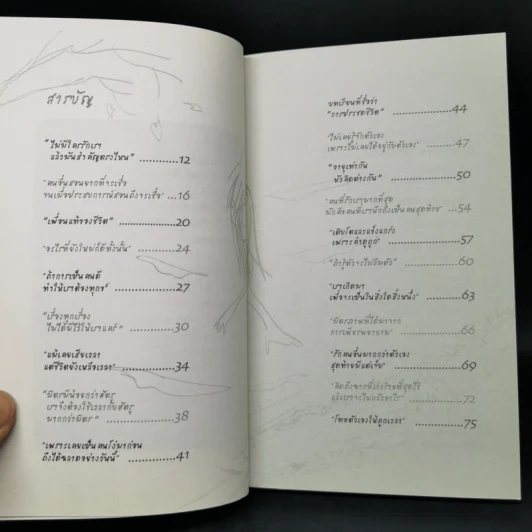 สารบัญ
"ไม่มีใครรักเรา
แล้วมันสำคัญตรงไหน" ............12
"คนอื่นสอนยากที่จะเชื่อ
จนเมื่อประสบการณ์สอนถึงจะเชื่อ" ....16
"เพื่อนแท้ของชีวิต" ...............20
"อะไรที่ยังใหม่ก็ดีทั้งนั้น" ............24
"ถ้าการเป็นคนดี
ทำให้เราต้องทุกข์" ...............27
"เรื่องทุกเรื่อง
ไม่ได้มีไว้ให้เราแคร์" ............30
"แม้เคยเสียเวลา
แต่ชีวิตยังเหลือเวลา" ...............34
"มิตรมีน้อยกว่าศัตรู
เราจึงต้องใช้เวลากับศัตรู
มากกว่ามิตร" ...............38
"เพราะเคยเป็นคนโง่มาก่อน
ถึงได้ฉลาดอย่างวันนี้" ...............41
บทเรียนที่ชื่อว่า
"การประชดชีวิต" ...............44
"ไม่เคยรู้จักตัวเอง
เพราะไม่เคยได้อยู่กับตัวเอง" .........47
"อายุเท่ากัน
หัวคิดต่างกัน" ...............50
"คนที่รักเรามากที่สุด
มักคือคนที่เรานึกถึงเป็นคนสุดท้าย" ....54
"เติบโตและแข็งแกร่ง
เพราะคำดูถูก" ...............57
"ถ้ารู้ตัวจะไม่ลืมตัว" ...............60
"เราเกิดมา
เพื่อจะเป็นวันสิ่งใดสิ่งหนึ่ง" ............63
"มิตรภาพที่ได้มาจาก
การเพียรพยายาม" ...............66
"รักคนอื่นมากกว่าตัวเอง
สุดท้ายมีแต่เจ็บ" ...............69
"คิดถึงฉากที่เลวร้ายที่สุดไว้
แล้วเราจะไม่กลัวอะไร" ............72
"โทษตัวเองให้ถูกเวลา" ............75